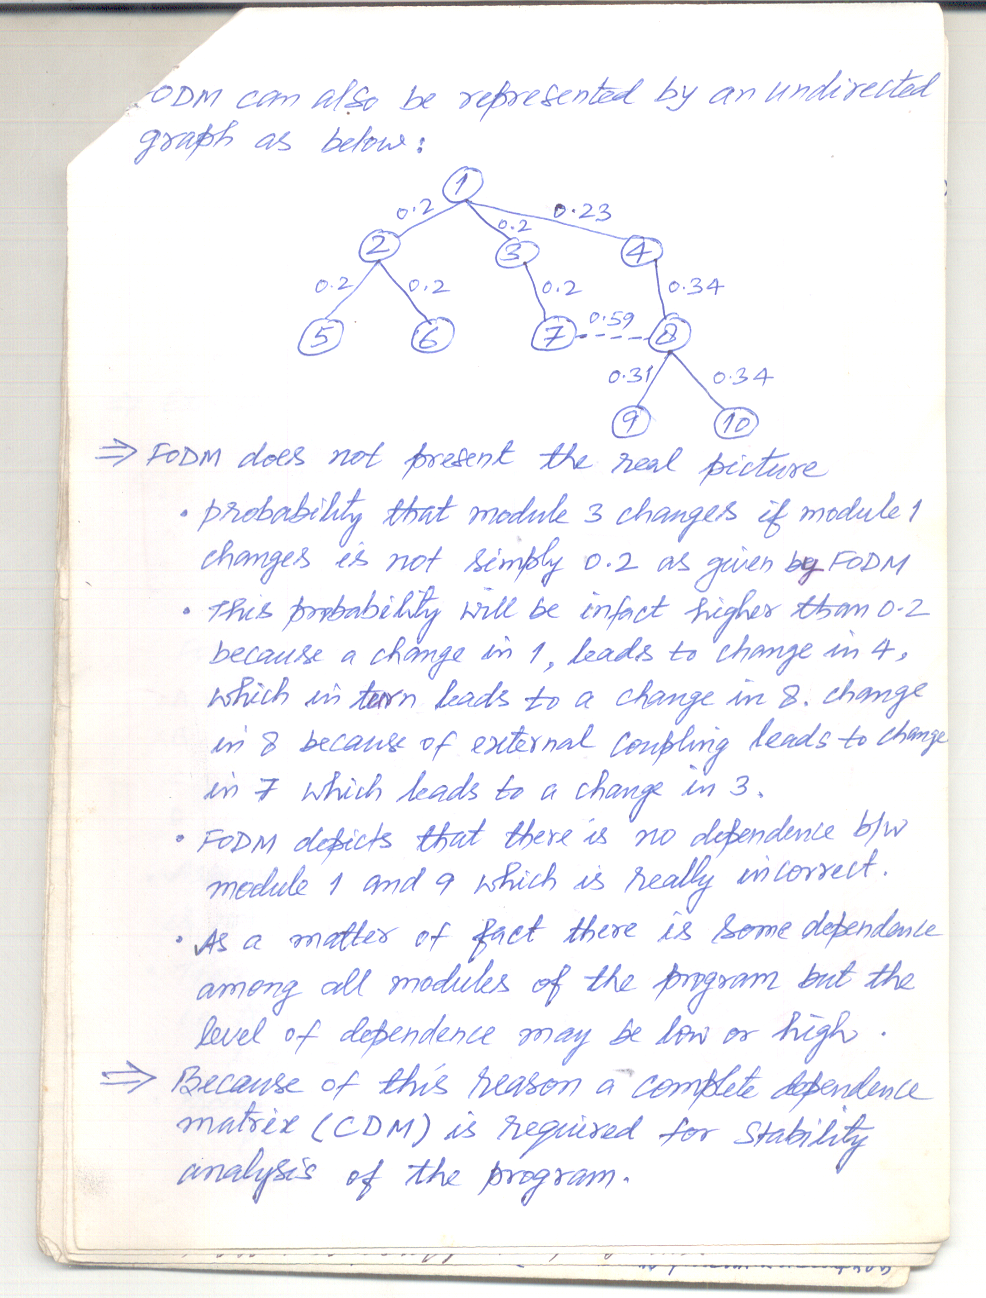 FODM can also be represented by an undirected
graph as below:
1
0.2
0.2
0.23
2
3
4
0.2
0.2
0.2
0.34
5
6
7
0.59
8
0.31
0.34
9
10
⇒ FODM does not present the real picture
• probability that module 3 changes if module 1
changes is not simply 0.2 as given by FODM
• this probability will be infact higher than 0.2
because a change in 1, leads to change in 4,
which in turn leads to a change in 8. change
in 8 because of external coupling leads to change
in 7 which leads to a change in 3.
• FODM depicts that there is no dependence b/w
module 1 and 9 which is really incorrect.
• As a matter of fact there is some dependence
among all modules of the program but the
level of dependence may be low or high.
⇒ Because of this reason a complete dependence
matrix (CDM) is required for stability
analysis of the program.